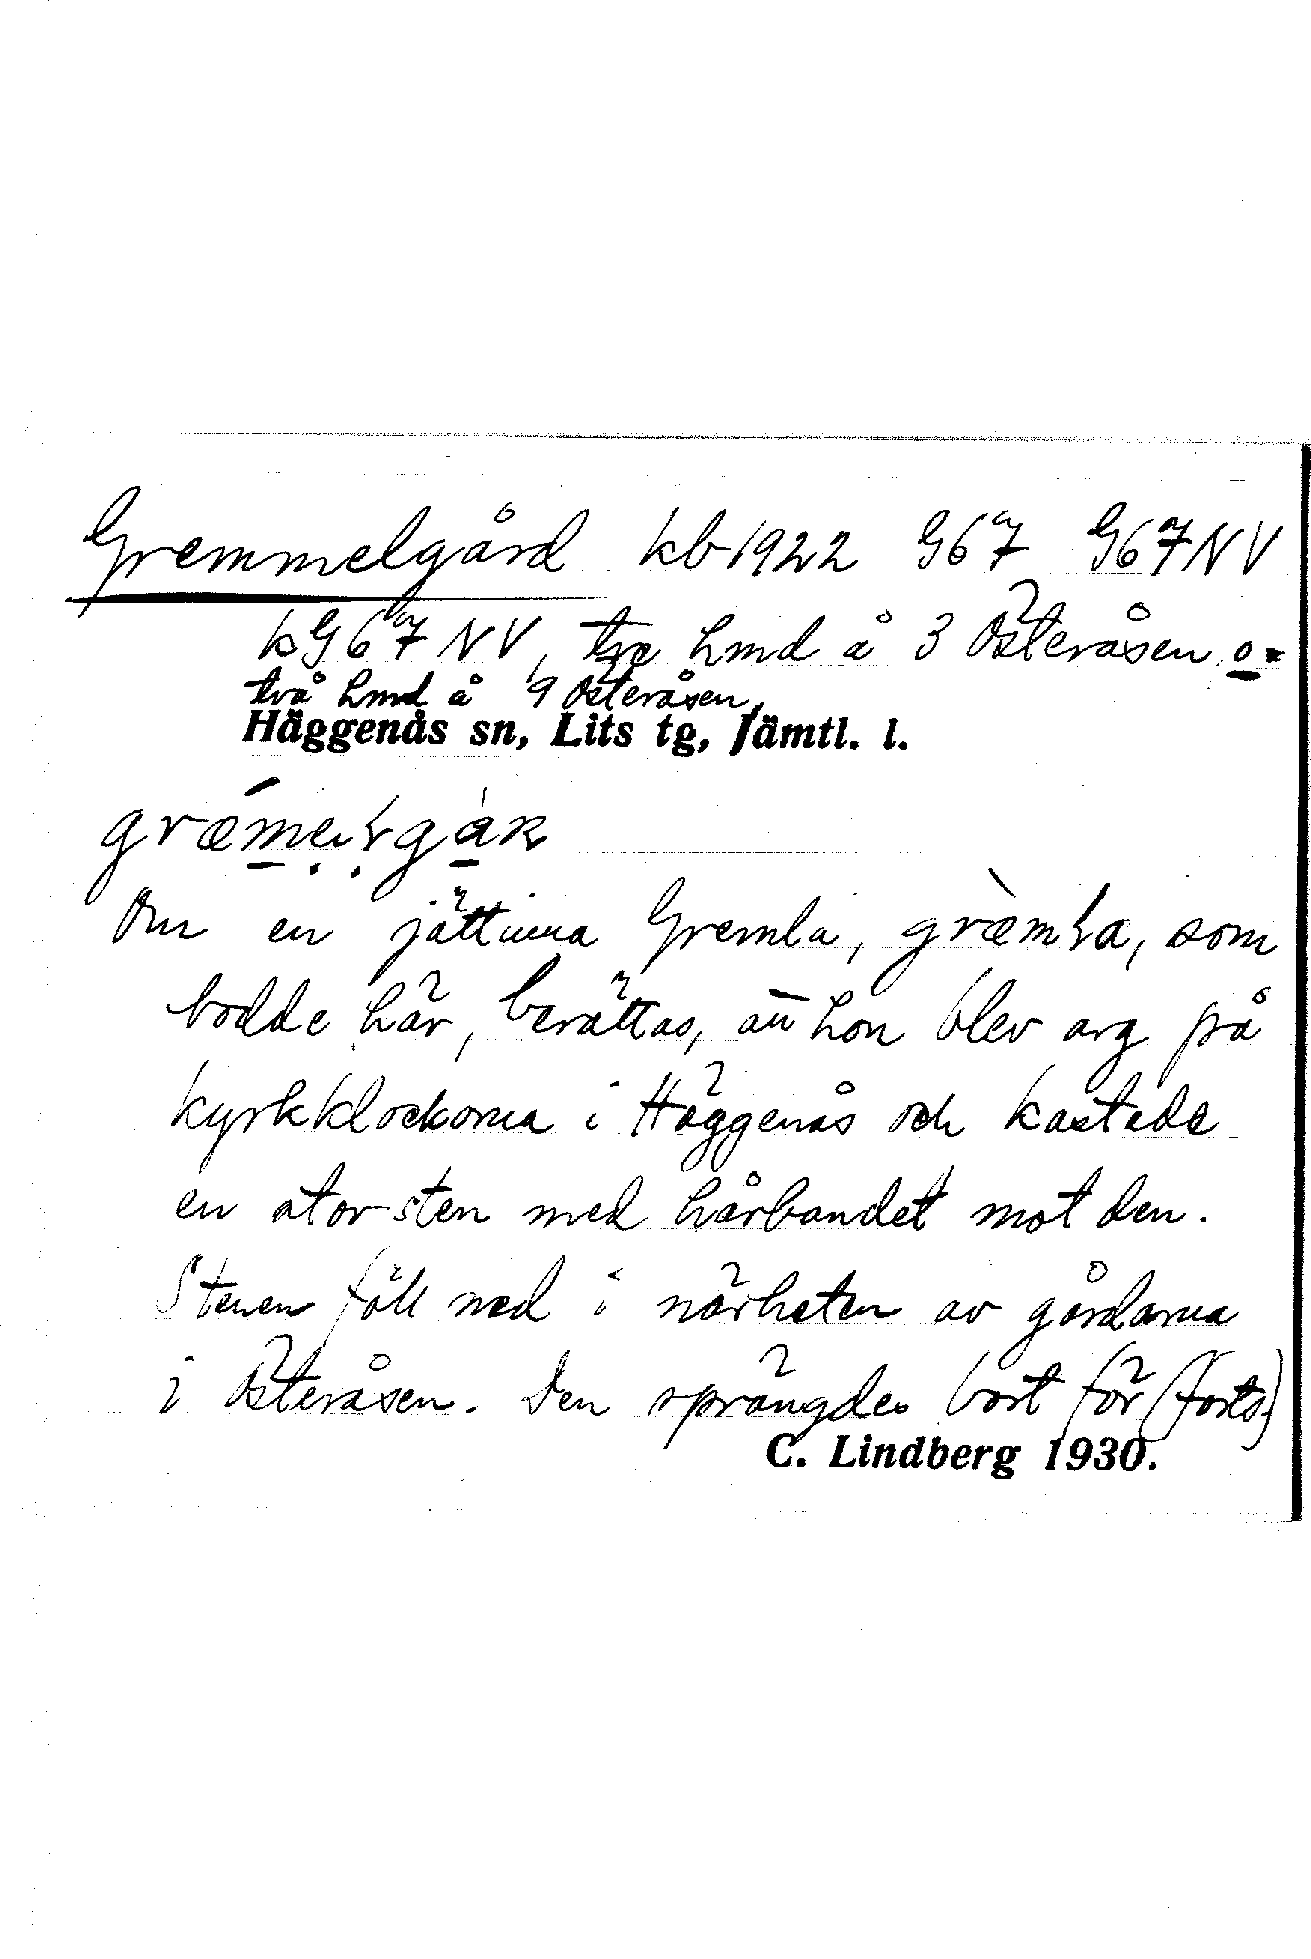 Gremmelgård kb 1922 G67 G67NV
kG67NV, tre hmd å 3 Österåsen o.
två hmd å 9 Österåsen,
Häggenås sn, Lits tg, Jämtl. l.
Om en jättinna Gremla, som
bodde här, berättas, att hon blev arg på
kyrkklockorna i Häggenås och kastade
en stor sten med hårbandet mot den.
Stenen föll ned i närheten av gårdarna
i Österåsen. Den sprängdes bort för (forts.)
C. Lindberg 1930.